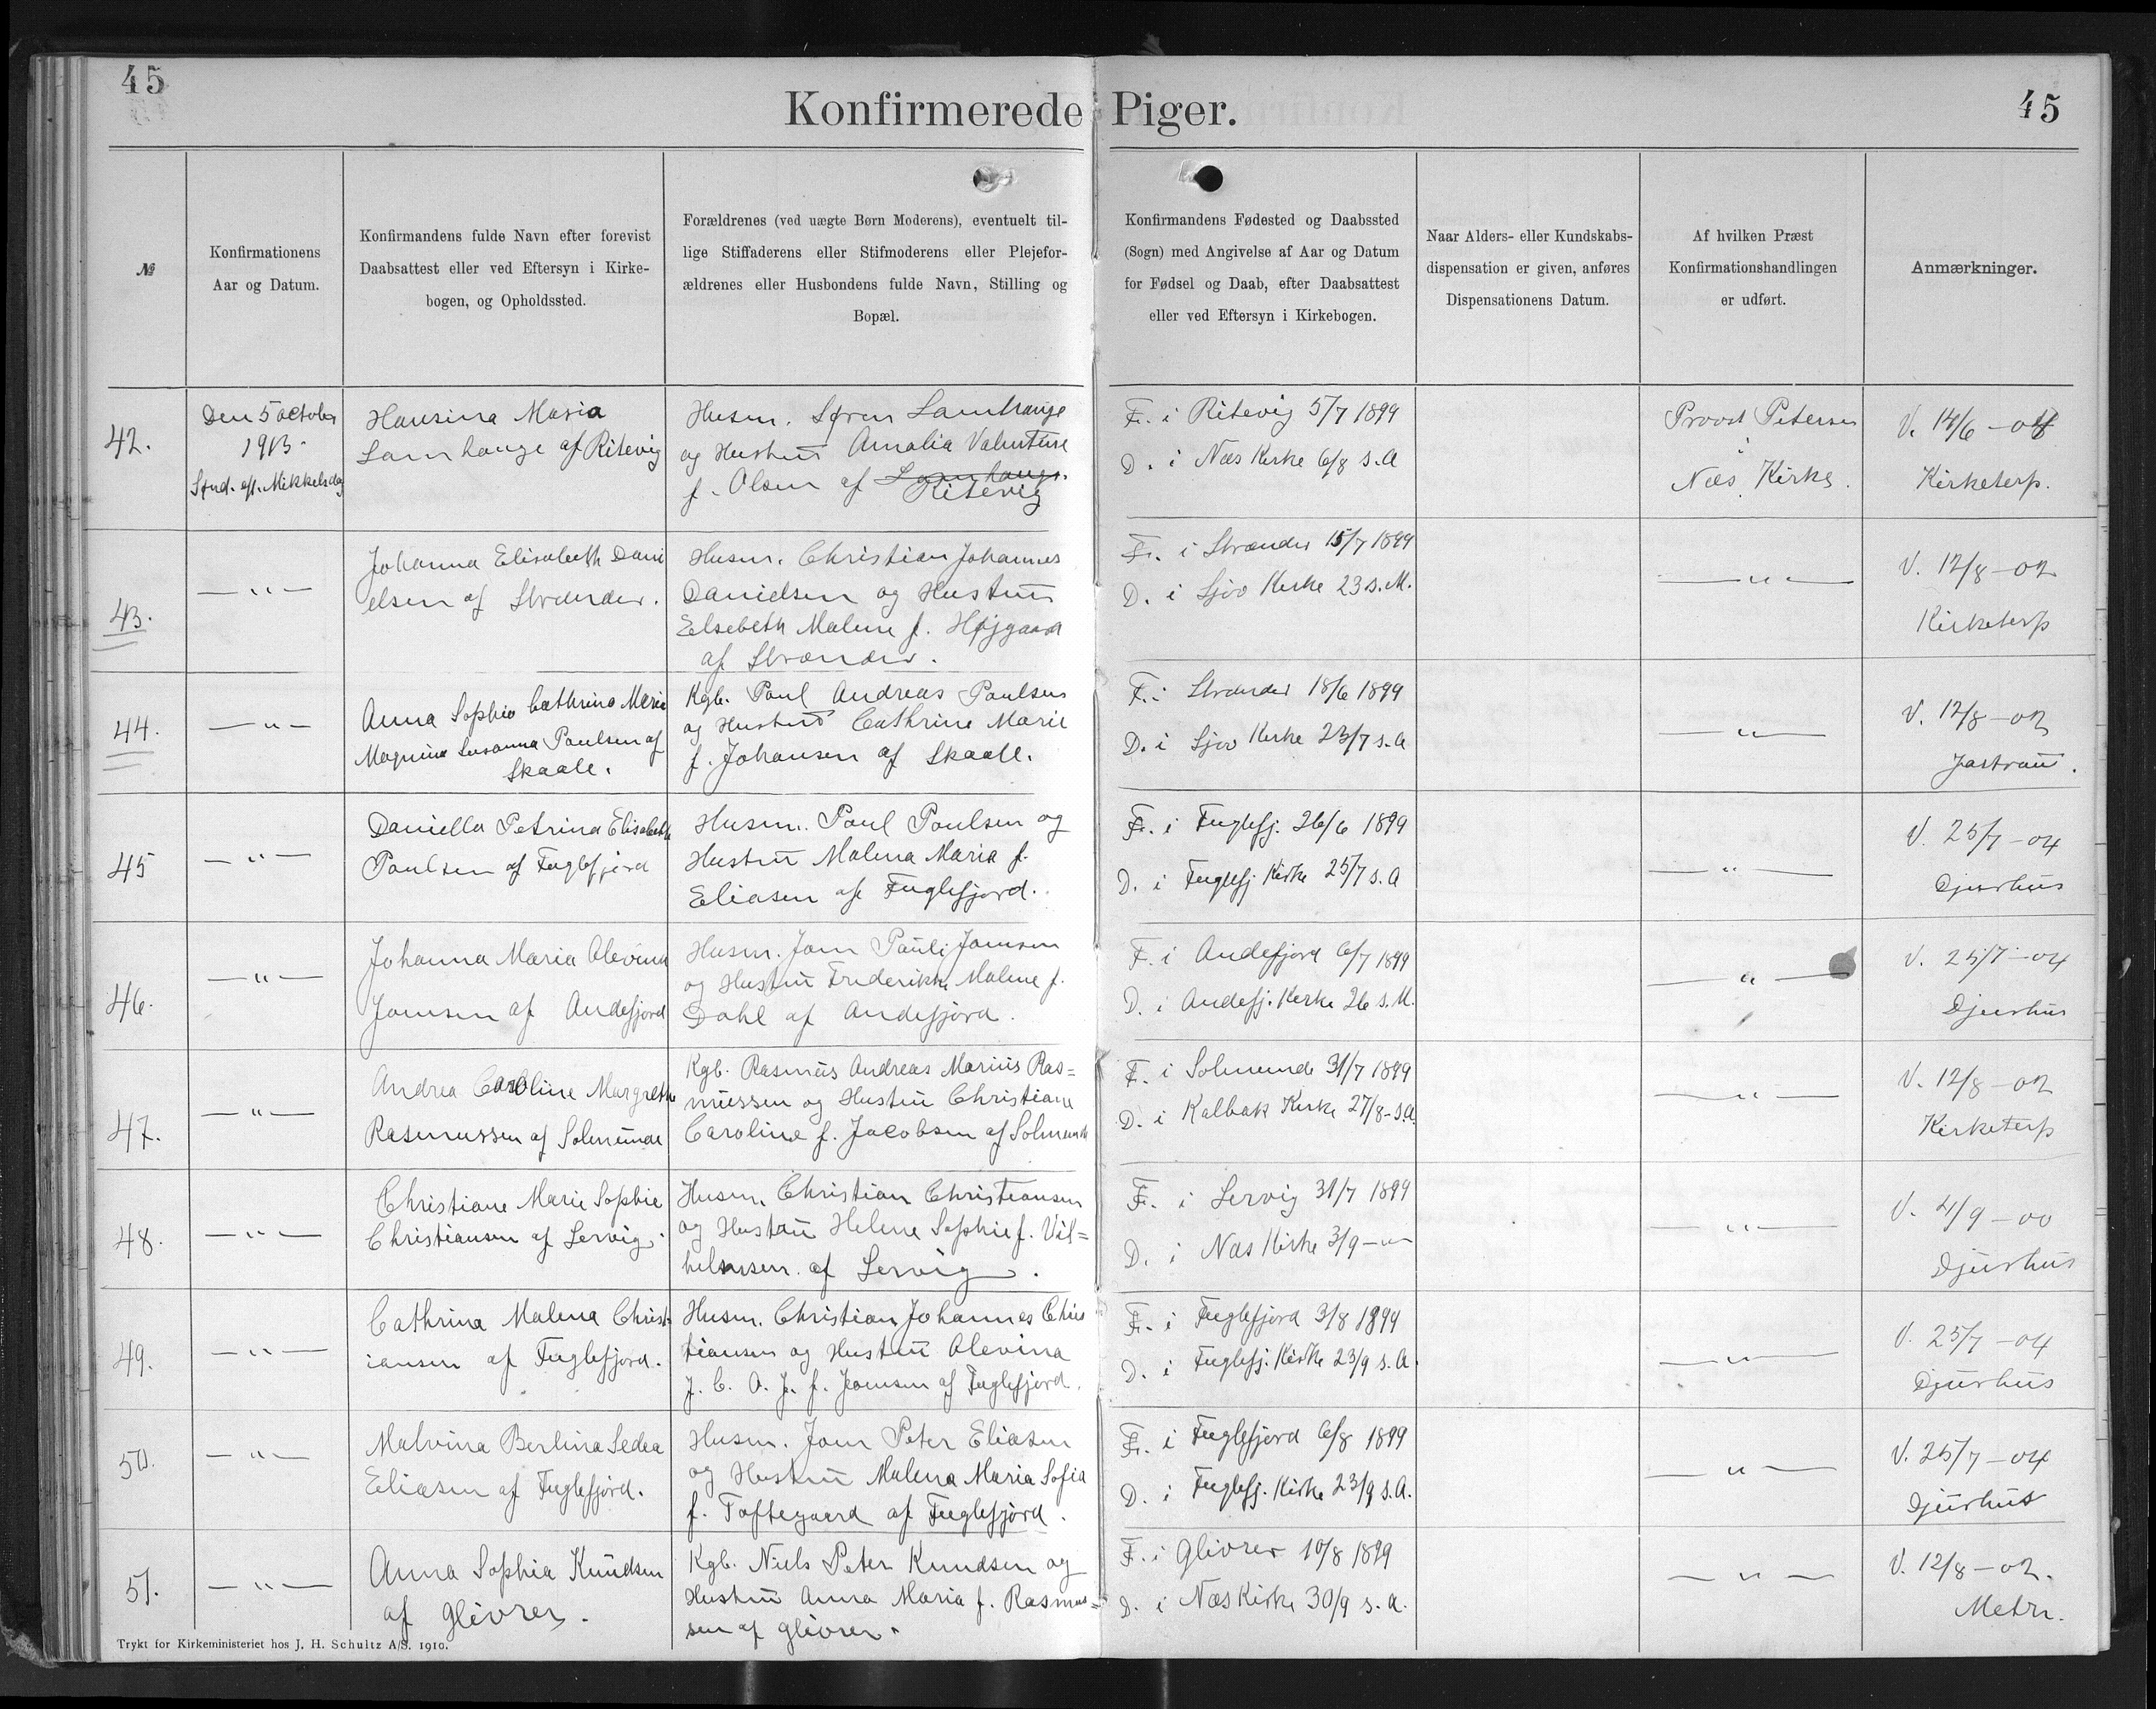 45
Konfirmerede Piger.
45
№
Konfirmationens
Aar og Datum.
Konfirmandens fulde Navn efter forevist
Daabsattest eller ved Eftersyn i Kirke-
bogen, og Opholdssted.
Forældrenes (ved uægte Børn Moderens), eventuelt til-
lige Stiffaderens eller Stifmoderens eller Plejefor-
ældrenes eller Husbondens fulde Navn, Stilling og
Bopæl.
Konfirmandens Fødested og Daabssted
(Sogn) med Angivelse af Aar og Datum
for Fødsel og Daab, efter Daabsattest
eller ved Eftersyn i Kirkebogen.
Naar Alders- eller Kundskabs-
dispensation er given, anføres
Dispensationens Datum.
Af hvilken Præst
Konfirmationshandlingen
er udført.
Anmærkninger.
42.
Den 5 october
1913.
Sønd. eft. Mikkelsdag
Hansina Maria
Lamhauge af Ritevig
Husm. Søren Lamhauge
og Hustru Amalia Valentine
f. Olsen af Lamhauge.
Ritevig
F. i Ritevig 5/7 1899
D. i Næs Kirke 6/8 s.A
Provst Petersen
i
Næs Kirke.
V. 14/6 - 04
Kirketerp.
43.
— " —
Johanna Elisabeth Dani
elsen af Strænder.
Husm. Christian Johannes
Danielsen og Hustru
Elsebeth Malene f. Højgaard
af Strænder.
F. i Strænder 15/7 1899
D. i Sjov Kirke 23 s.M.
— " —
V. 12/8 - 02
Kirketerp
44.
— " —
Anna Sophie Cathrina Marie
Magnine Susanna Paulsen af
Skaale.
Kgb. Poul Andreas Poulsen
og Hustru Cathrine Marie
f. Johansen af Skaale.
F. i Strænder 18/6 1899
D. i Sjov Kirke 23/7 s.A
— " —
V. 12/8 - 02
Jastrau.
45
— " —
Daniella Petrina Elisabeth
Poulsen af Fuglefjord
Husm. Poul Poulsen og
Hustru Malena Maria f.
Eliasen af Fuglefjord.
F. i Fuglefj. 26/6 1899
D. i Fuglefj Kirke 25/7 s.A
— " —
V. 25/7 - 04
Djurhus
46.
— " —
Johanna Maria Olevina
Joensen af Andefjord
Husm. Joen Pauli Joensen
og Hustru Frederikke Malene f.
Dahl af Andefjord.
F. i Andefjord 6/7 1899
D. i Andefj. Kirke 26 s.M.
— " —
V. 25/7 - 04
Djurhus
47.
— " —
Andrea Caroline Margrethe
Rasmussen af Solmunde
Kgb. Rasmus Andreas Marius Ras=
mussen og Hustru Christiane
Caroline f. Jacobsen af Solmunde
F. i Solmunde 31/7 1899
D. i Kalbak Kirke 27/8 - s.A.
— " —
V. 12/8 - 02
Kirketerp
48.
— " —
Christiane Marie Sophie
Christiansen af Lervig.
Husm. Christian Christiansen
og Hustru Helene Sophie f. Vil=
helmsen af Lervig.
F. i Lervig 31/7 1899
D. i Næs Kirke 3/9 — " —
— " —
V. 4/9 - 00
Djurhus
49.
— " —
Cathrina Malena Christ-
iansen af Fuglefjord.
Husm. Christian Johannes Chris
tiansen og Hustru Olevina
J. C. O. J. f. Joensen af Fuglefjord.
F. i Fuglefjord 3/8 1899
D. i Fuglefj. Kirke 23/9 s.A.
— " —
V. 25/7 - 04
Djurhus
50.
— " —
Malvina Berlina Sedea
Eliasen af Fuglefjord.
Husm. Joen Peter Eliasen
og Hustru Malena Maria Sofia
f. Toftegaard af Fuglefjord.
F. i Fuglefjord 6/8 1899
D. i Fuglefj. Kirke 23/9 s.A.
— " —
V. 25/7 - 04
Djurhus
51.
— " —
Anna Sophia Knudsen
af Glivrer.
Kgb. Niels Peter Knudsen og
Hustru Anna Maria f. Rasmus=
sen af Glivrer.
F. i Glivrer 10/8 1899
D. i Næs Kirke 30/9 s.A.
— " —
V. 12/8 - 02.
Metz.
Trykt for Kirkeministeriet hos J. H. Schultz A/S. 1910.